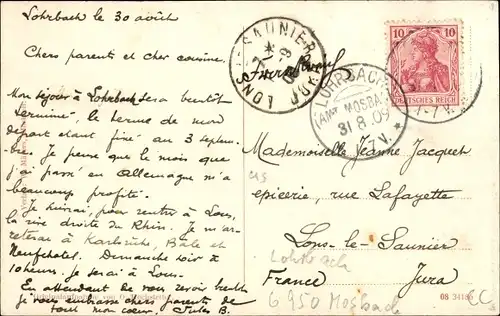 Lohrbach le 30 août
Chers parents et cher cousine,
Mon séjour à Lohrbach sera bientôt
terminé, le terme de mon
départ étant fixé au 3 septem-
bre. Je pense que le mois que
j'ai passé en Allemagne m'a
beaucoup profité.
Je suivrai, pour rentrer à Lons,
la rive droite du Rhin. Je m'ar-
reterai à Karlsruhe, Bâle et
Neufchatel. Dimanche soir à
10 heures je serai à Lons.
En attendant de vous revoir bientôt
je vous embrasse chers parents de
tout mon coeur. Jules B.
LONS-LE-SAUNIER
JURA
LOHRBACH
(AMT MOSBACH)
31 8 09
V.
10 10
DEUTSCHES REICH
Mademoiselle Jeanne Jacquet
epicerie, rue Lafayette
Lons-le-Saunier
France Jura
Lohrbach
6950 Mosbach
08 34186
CC